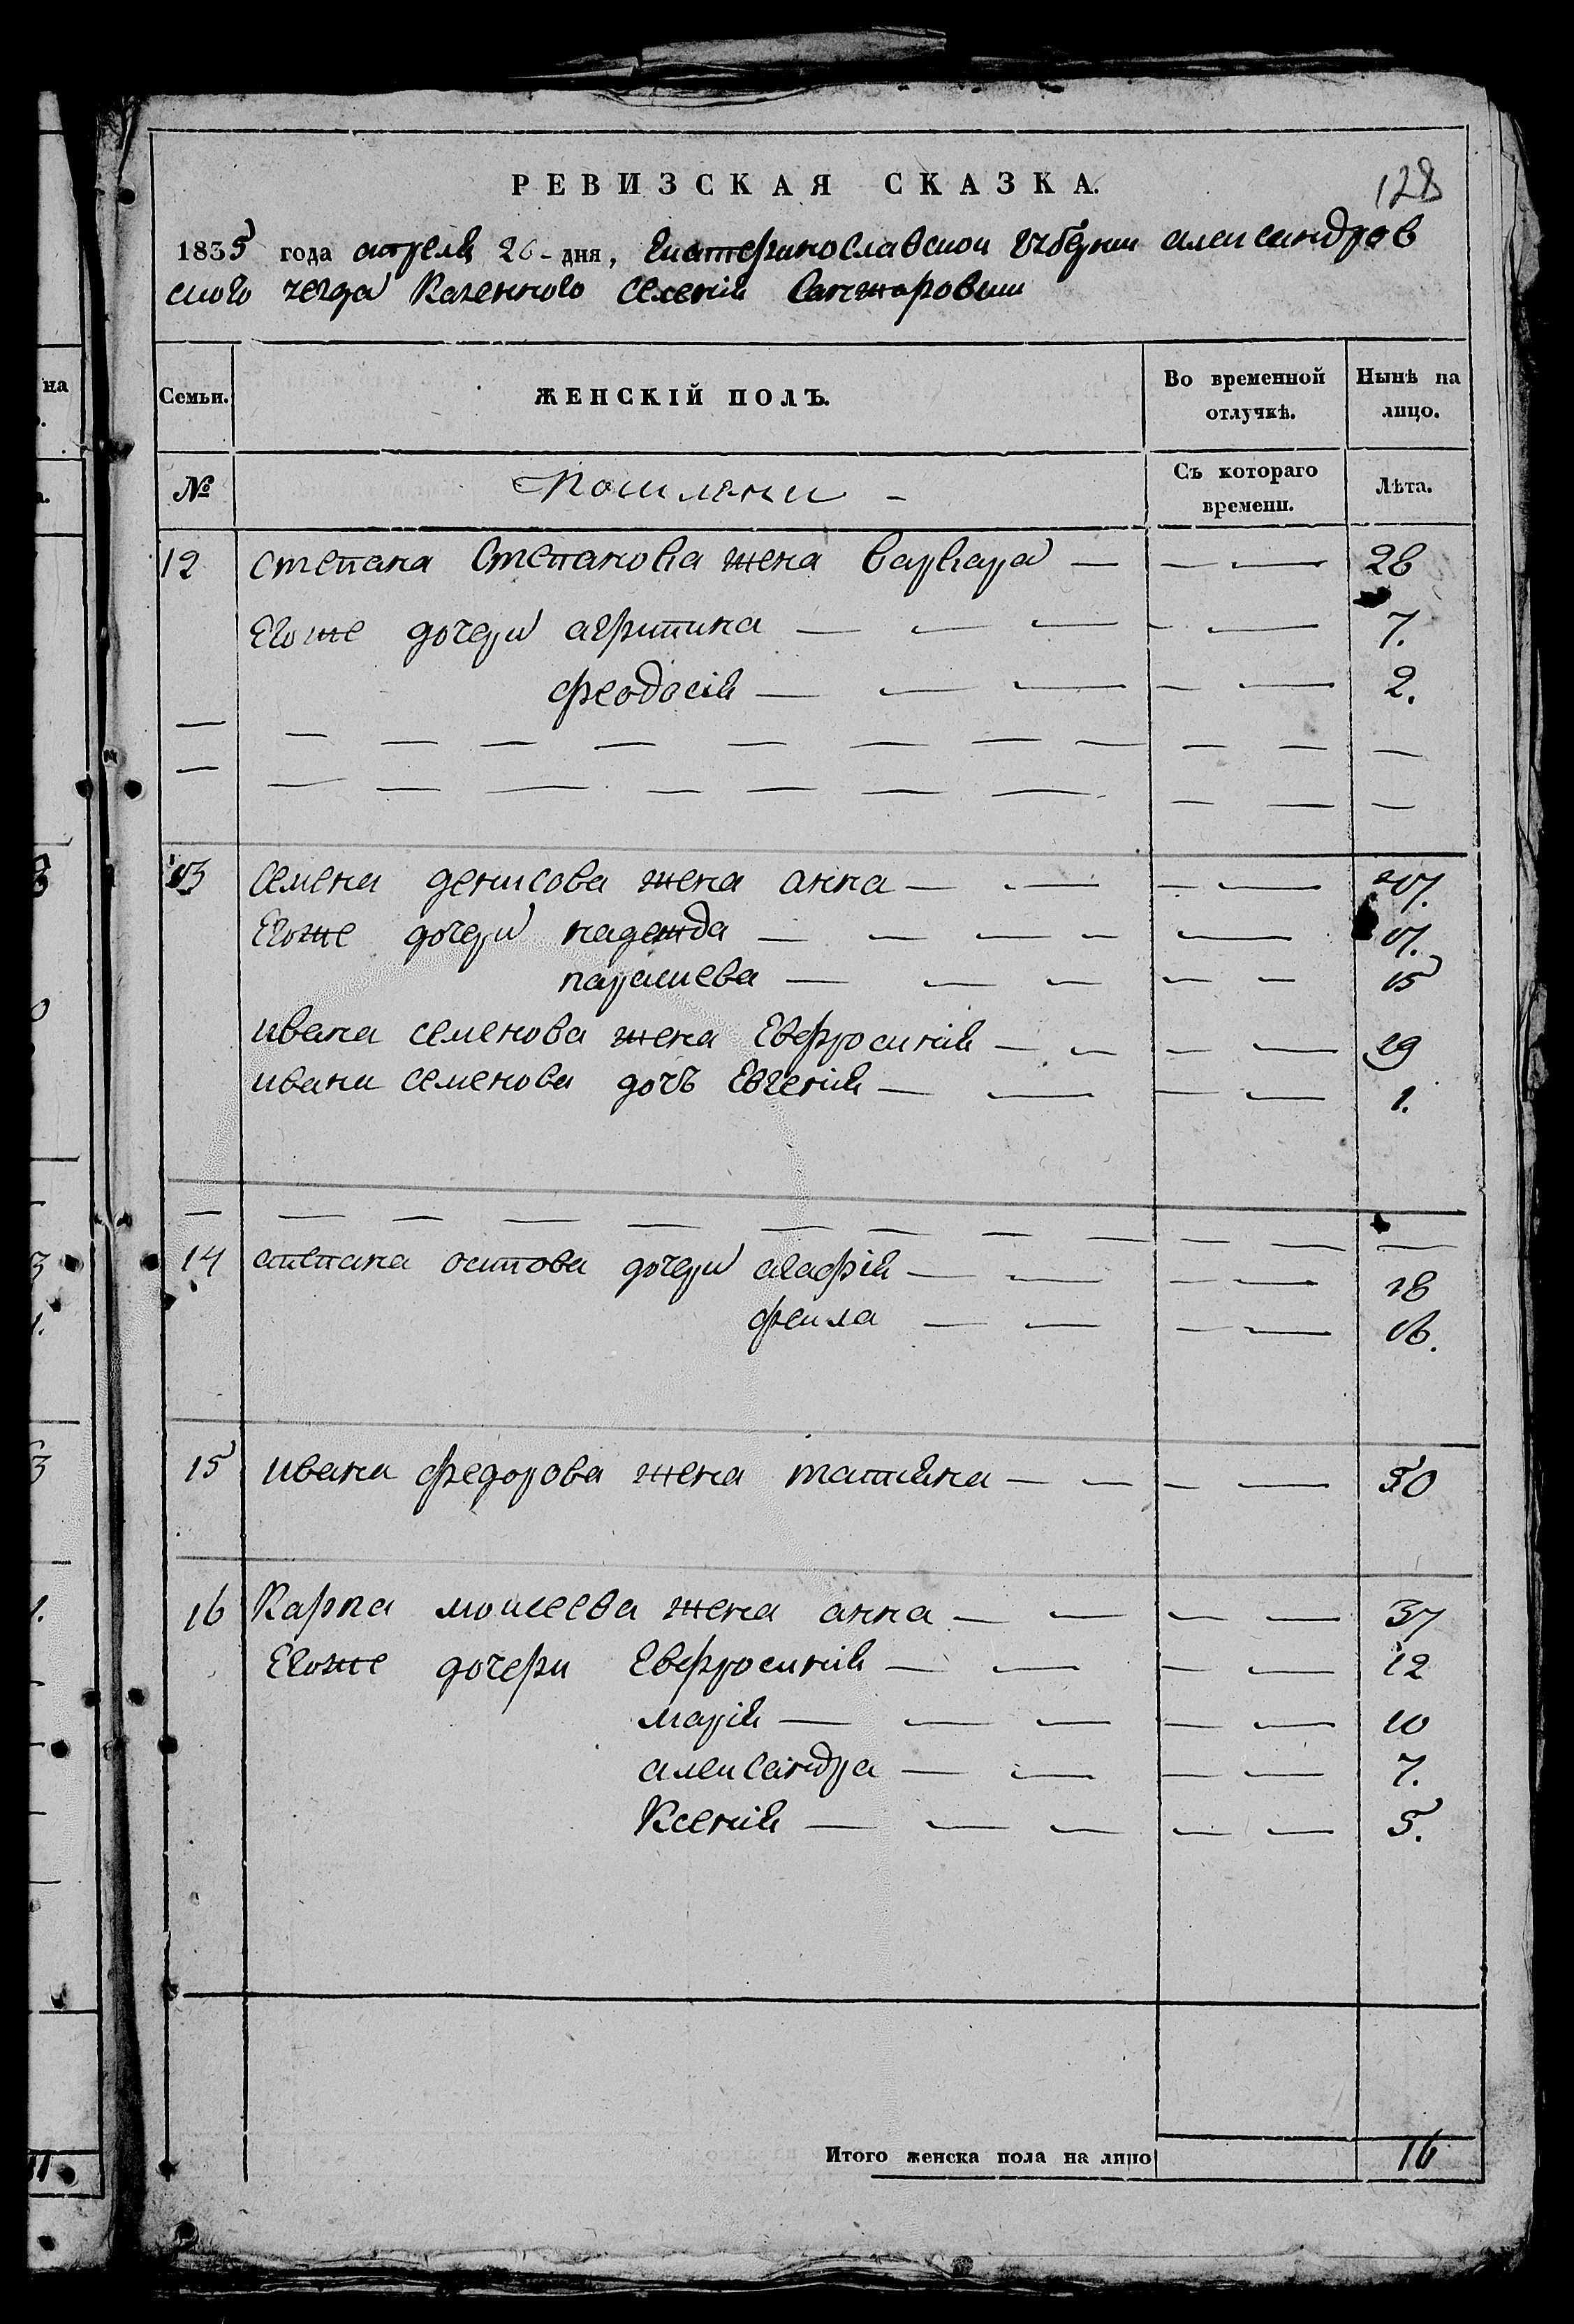 128
РЕВИЗСКАЯ СКАЗКА.
1835 года апреля 26 дня, Екатеринославской губернии александров
ского уезда Казенного Селения Санжаровки
Семьи. ЖЕНСКІЙ ПОЛЪ. Во временной отлучкѣ. Нынѣ на лицо.
№ Съ котораго времени. Лѣта.
12 степана Степанова жена Варвара — 26
Егоже дочери агрипина — 7.
феодосія — 2.
13 Семена денисова жена анна — 47.
Егоже дочери надежда — 17.
параскева — 15
ивана семенова жена Ефросинія — 29
ивана семенова дочъ Евгенія — 1.
14 степана остова дочери агафія — 18
фекла — 16.
15 ивана федорова жена татияна — 50
16 Карпа моисеева жена анна — 37
Егоже дочери Евфросинія — 12
марія — 10
александра — 7.
Ксенія — 5.
Итого женска пола на лицо 16
на